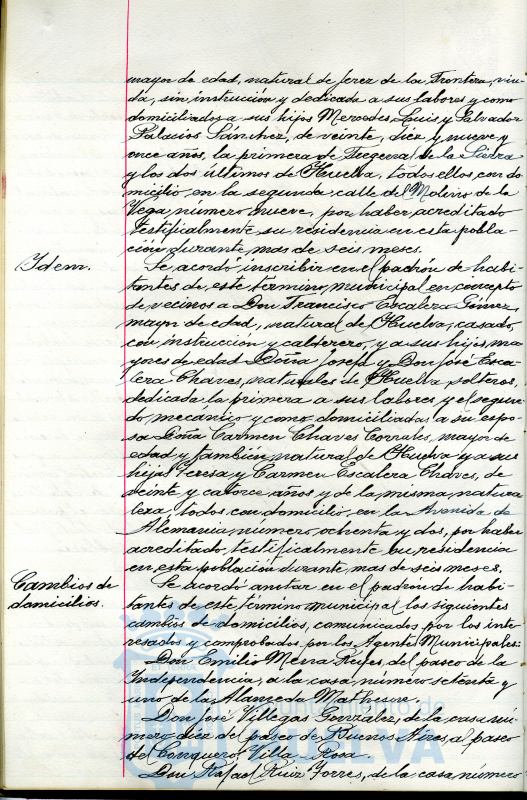 mayor de edad, natural de Jerez de la Frontera, viu-
da, sin instrucción y dedicada a sus labores y como
domiciliados a sus hijos Mercedes, Luis y Salvador
Palacios Sánchez, de veinte, diez y nueve y
once años, la primera de la Sierra
y los dos últimos de Huelva, todos ellos, con do
micilio en la segunda calle del Molino de la
Vega número nueve, por haber acreditado
testificalmente su residencia en esta pobla-
ción durante mas de seis meses.
Idem.
Se acordó inscribir en el padrón de habi-
tantes de este término municipal en concepto
de vecinos a Don Francisco Escalera Gómez,
mayor de edad, natural de Huelva, casado,
con instrucción y calderero, y a sus hijos ma
yores de edad Doña Josefa y Don José Esca-
lera Chaves, naturales de Huelva, solteros,
dedicada la primera a sus labores y el segun-
do mecánico y como domiciliados a su espo-
sa Doña Carmen Chaves Corrales, mayor de
edad y también natural de Huelva y a sus
hijas Teresa y Carmen Escalera Chaves, de
veinte y catorce años y de la misma natura
leza, todos con domicilio en la Avenida de
Alemania, número ochenta y dos, por haber
acreditado testificalmente su residencia
en esta población durante mas de seis meses.
Cambios de
domicilios.
Se acordó anotar en el padrón de habi-
tantes de este término municipal los siguientes
cambios de domicilios, comunicados por los inte
resados y comprobados por los Agentes Municipales:
Don Emilio Mena Reyes, del paseo de la
Independencia, a la casa, número setenta y
uno de la Alameda
Don José Villegas Gonzalez, de la casa nú-
mero diez del paseo de Buenos Aires, al paseo
del Conquero, Villa Rosa.
Don Rafael Ruiz Torres, de la casa número
Ayuntamiento de
HUELVA